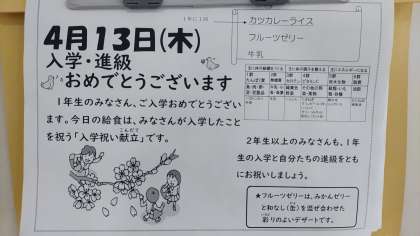 4月13日(木)
入学・進級
おめでとうございます
1年生のみなさん、ご入学おめでとうござい
ます。今日の給食は、みなさんが入学したこと
を祝う「入学祝い献立」です。
こんだて
カツカレーライス
フルーツゼリー
牛乳
1群
2群
3群
4群
5群
2年生以上のみなさんも、1年
生の入学と自分たちの進級をとも
にお祝いしましょう。
★フルーツゼリーは、みかんゼリー
と和なし(缶)を混ぜ合わせた
彩りのよいデザートです。